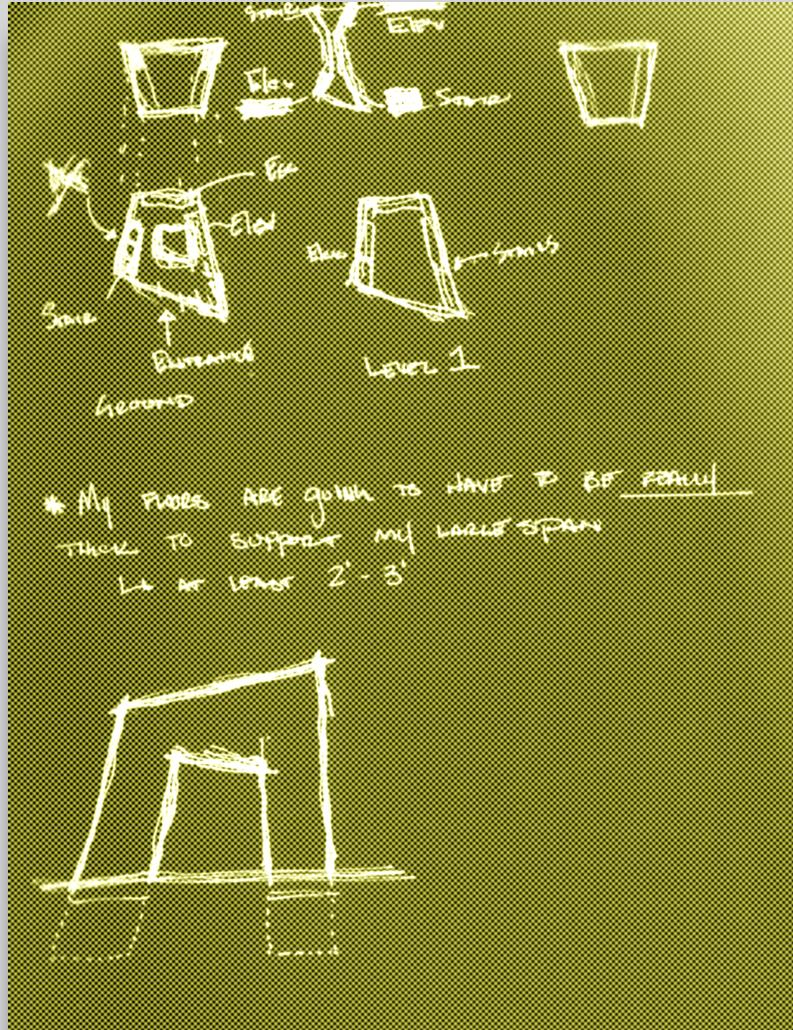 STAIR
ELEV
Elev
STAIR
Elev
STAIR
ENTRANCE
GROUND
STAIRS
LEVEL 1
* My FLOORS ARE goINg TO HAVE TO BE REALLY
THICK TO SUPPORT My LARGE SPAN
↳ AT LEAST 2' - 3'